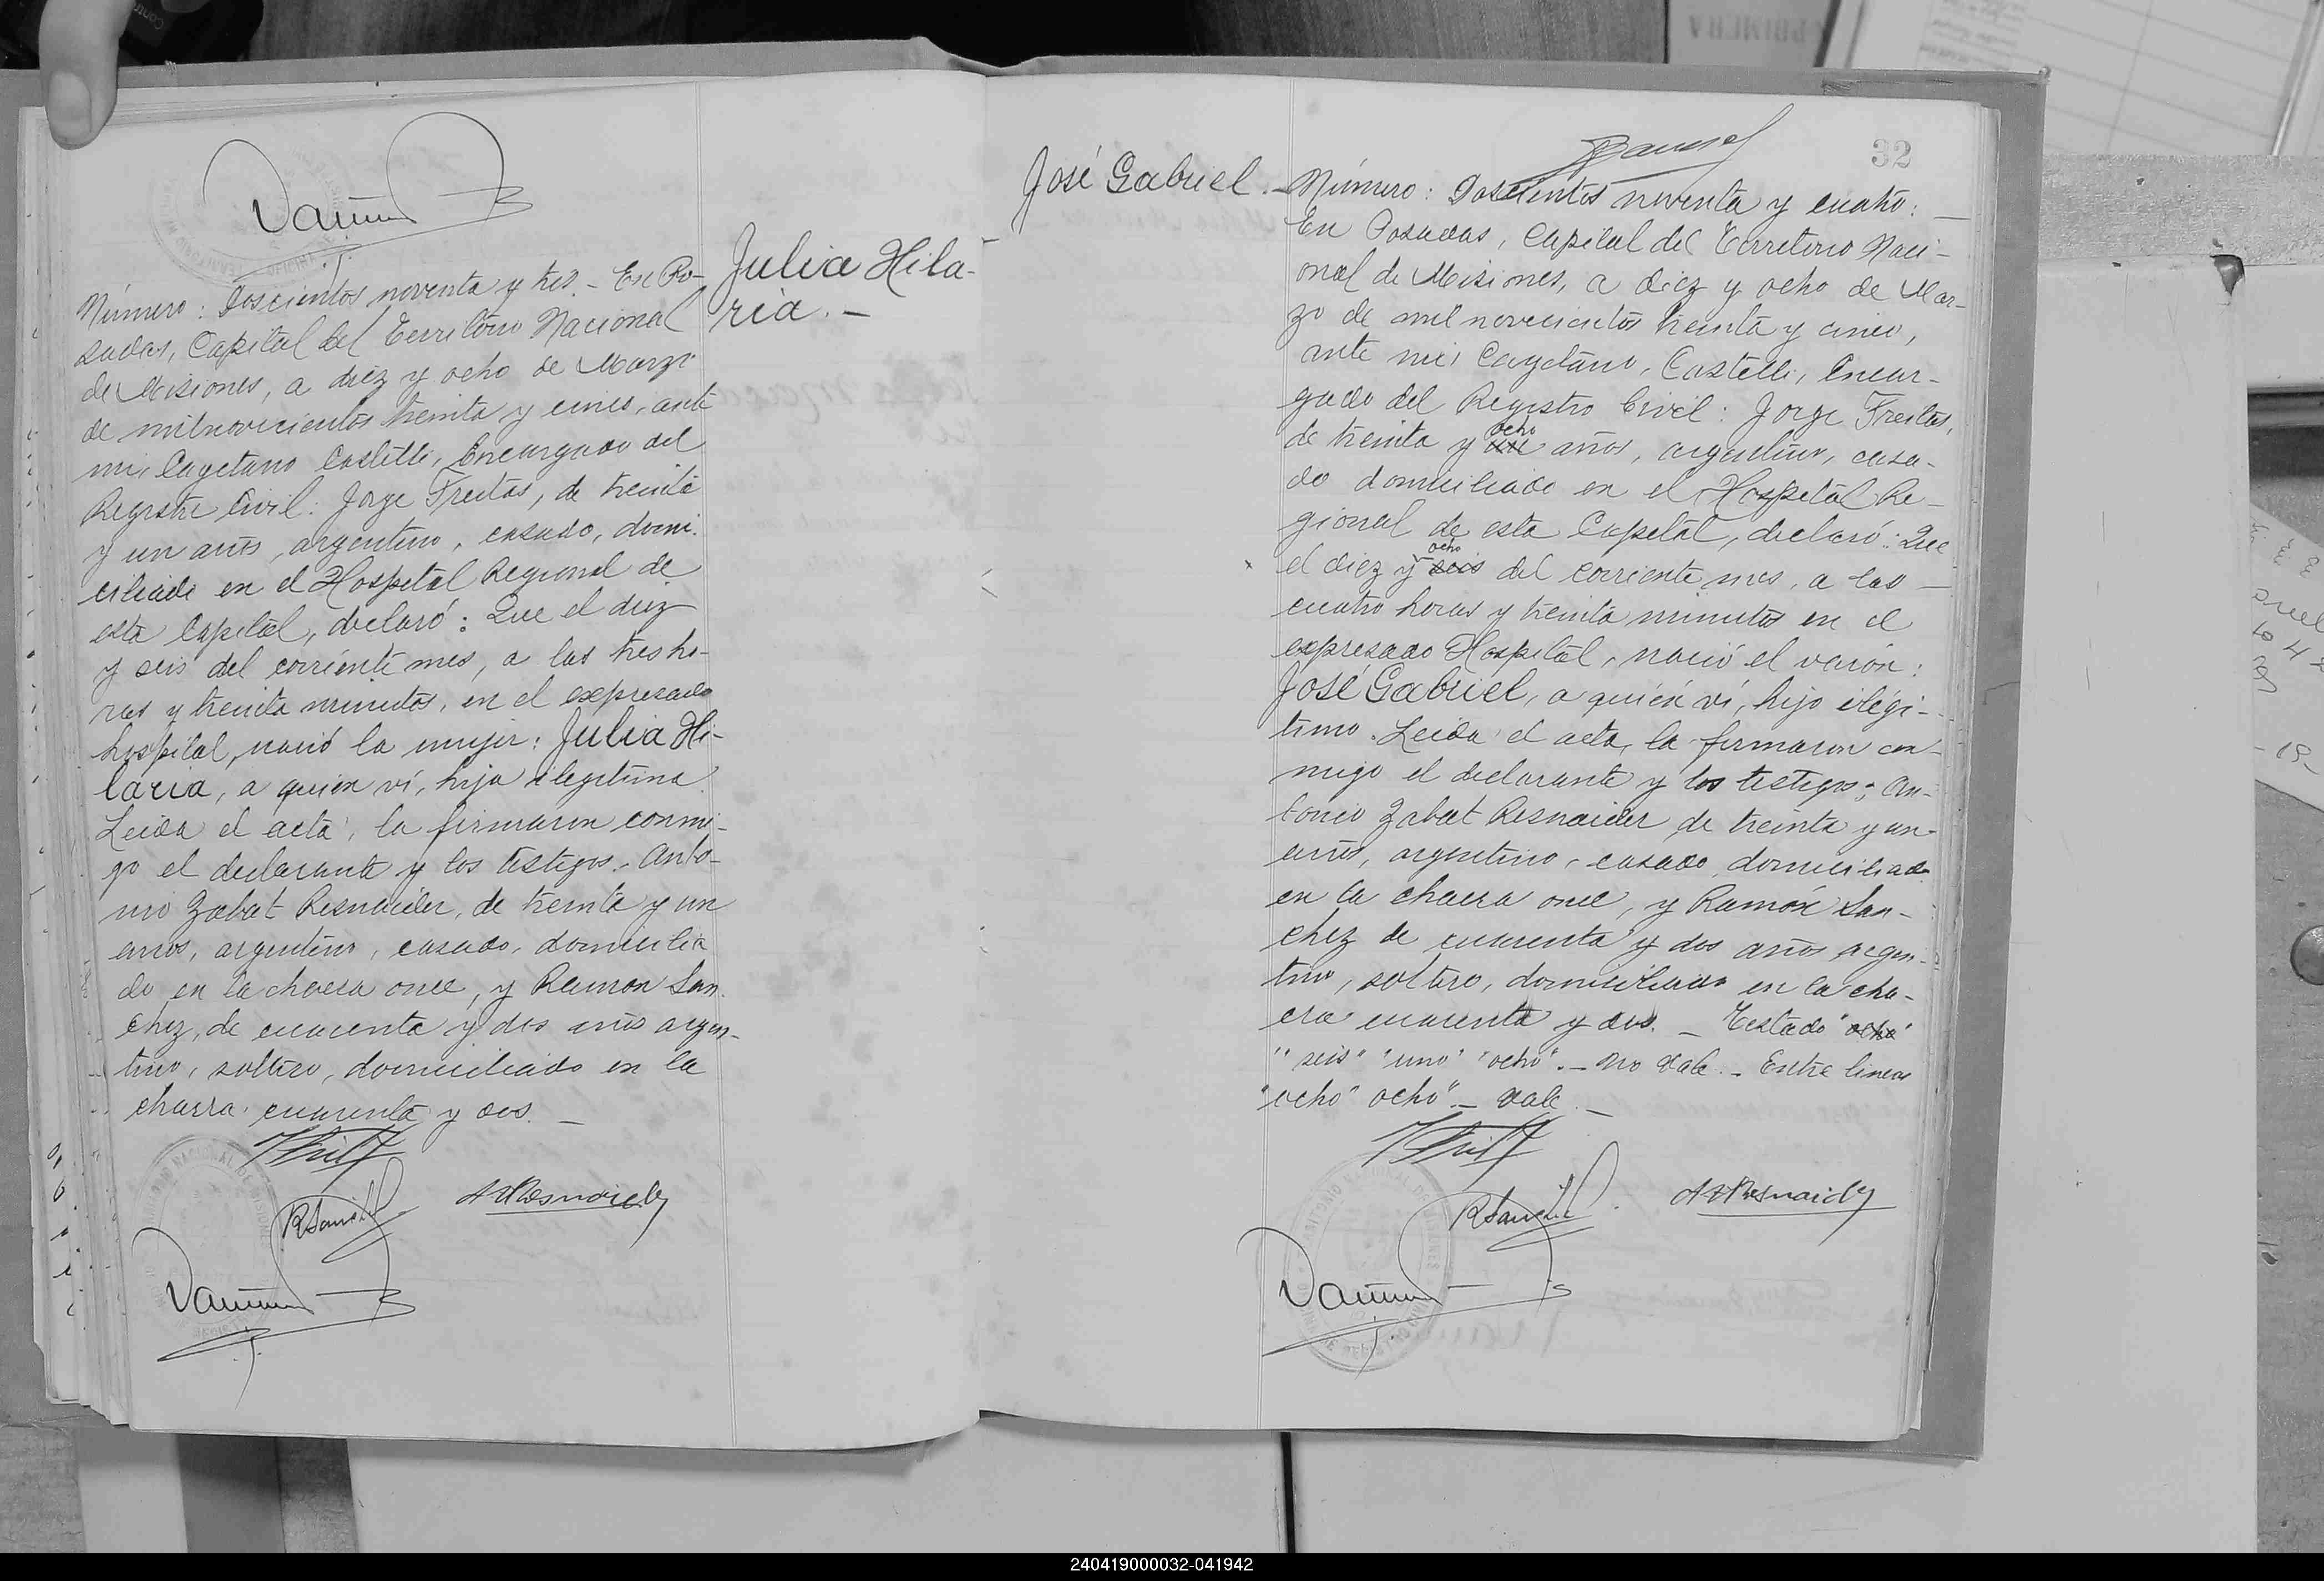 Julia Hila-
ria. -
Número: Doscientos noventa y tres. - En Po-
sadas, Capital del Territorio Nacional
de Misiones, a diez y ocho de Marzo
de mil novecientos treinta y cinco, ante
mi, Cayetano Castelli, Encargado del
Registro Civil: Jorge Freitas, de treinta
y un años, argentino, casado, domi-
ciliado en el Hospital Regional de
esta Capital, declaró: Que el diez
y seis del corriente mes, a las tres ho-
ras y treinta minutos, en el expresado
hospital, nació la mujer: Julia Hi-
laria, a quien ví, hija ilegítima.
Leida el acta, la firmaron conmi-
go el declarante y los testigos. Anto-
nio Zabat Resnaider, de treinta y un
anos, argentino, casado, domicilia
do en la chacra once, y Ramon San-
chez, de cuarenta y dos años argen-
tino, soltero, domiciliado en la
chacra cuarenta y dos. -
RSanchez
AZResnaider
32
José Gabriel. -
Número: Doscientos noventa y cuatro: -
En Posadas, Capital del Territorio Naci-
onal de Misiones, a diez y ocho de Mar-
zo de mil novecientos treinta y cinco,
ante mi, Cayetano, Castelli, Encar-
gado del Registro Civil: Jorge Freitas,
ocho
de treinta y años, argentino, casa-
do domiciliado en el Hospital Re-
gional de esta Capital, declaró: Que
ocho
el diez y seis del corriente mes, a las -
cuatro horas y treinta minutos en el
expresado Hospital, nació el varón:
José Gabriel, a quién ví, hijo ilégi-
timo. Leida el acta, la firmaron con-
migo el declarante y los testigos; An-
tonio Zabat Resnaider de treinta y un-
años, argentino, casado, domiciliado
en la chacra once, y Ramón San-
chez de cuarenta y dos años argen-
tino, soltero, domiciliado en la cha-
cra cuarenta y dos. - Testado "ocho"
"seis" "uno" "ocho". - no vale. - Entre lineas
"ocho" ocho". - vale. -
RSanchez
AZResnaider
PRIMERA
240419000032-041942